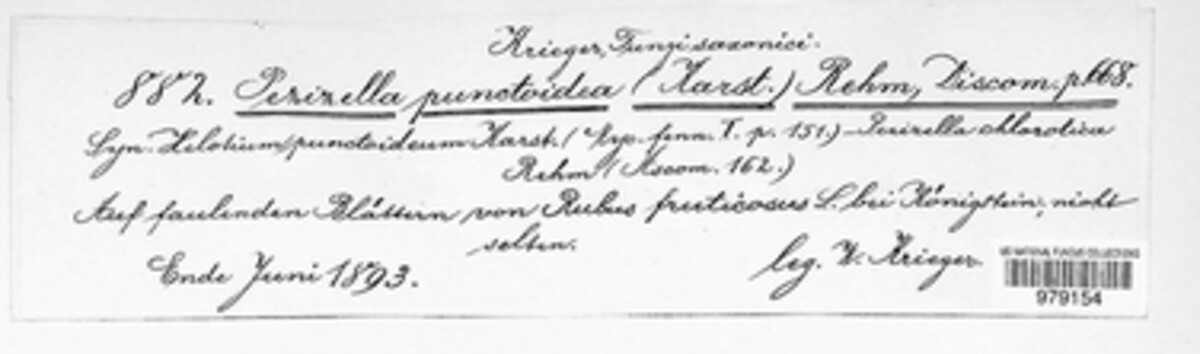 Krieger, Fungi saxonici.
882. Pezizella punctoidea (Karst.) Rehm, Discom. p. 668.
Syn. Helotium punctoideum Karst. (Myc. fenn. I. p. 151.) – Pezizella chlorotica
Rehm (Ascom. 162.)
Auf faulenden Blättern von Rubus fruticosus L. bei Königstein, nicht
selten.
Ende Juni 1893.
leg. W. Krieger.
US NATIONAL FUNGUS COLLECTIONS
979154